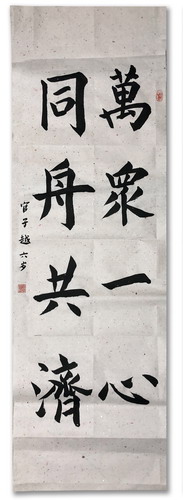 萬眾一心
同舟共濟
官子越六岁